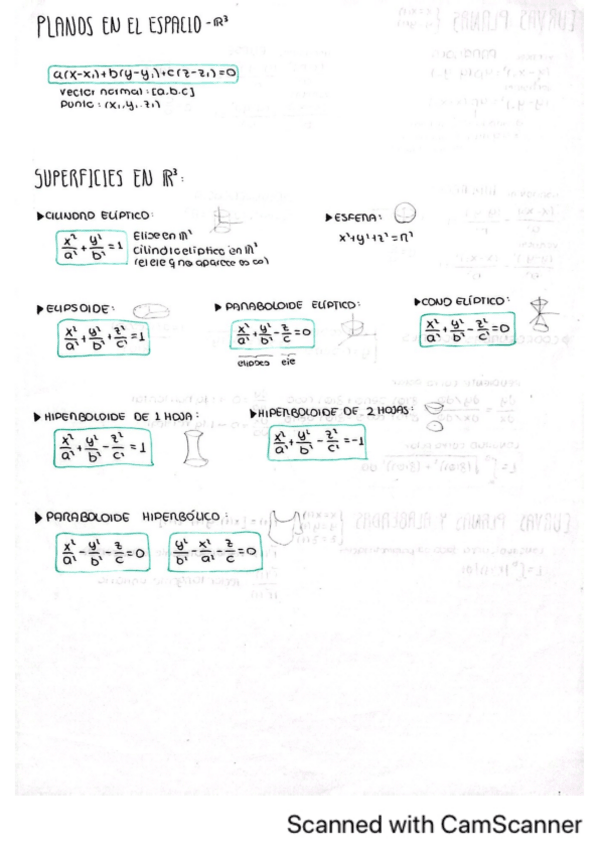 PLANOS EN EL ESPACIO - ℝ³
a(x-x₁)+b(y-y₁)+c(z-z₁)=0
vector normal: [a,b,c]
Punto: (x₁,y₁,z₁)
SUPERFICIES EN ℝ³:
▶CILINDRO ELÍPTICO:
x²/a² + y²/b² = 1
Elipse en ℝ²
cilindro elíptico en ℝ³
(el eje q no aparece es ∞)
▶ESFERA:
x²+y²+z²=r²
▶ELIPSOIDE:
x²/a² + y²/b² + z²/c² = 1
▶PARABOLOIDE ELÍPTICO:
x²/a² + y²/b² - z/c = 0
elipses eje
▶CONO ELÍPTICO:
x²/a² + y²/b² - z²/c² = 0
▶HIPERBOLOIDE DE 1 HOJA:
x²/a² + y²/b² - z²/c² = 1
▶HIPERBOLOIDE DE 2 HOJAS:
x²/a² + y²/b² - z²/c² = -1
▶PARABOLOIDE HIPERBÓLICO:
x²/a² - y²/b² - z/c = 0
y²/b² - x²/a² - z/c = 0
Scanned with CamScanner